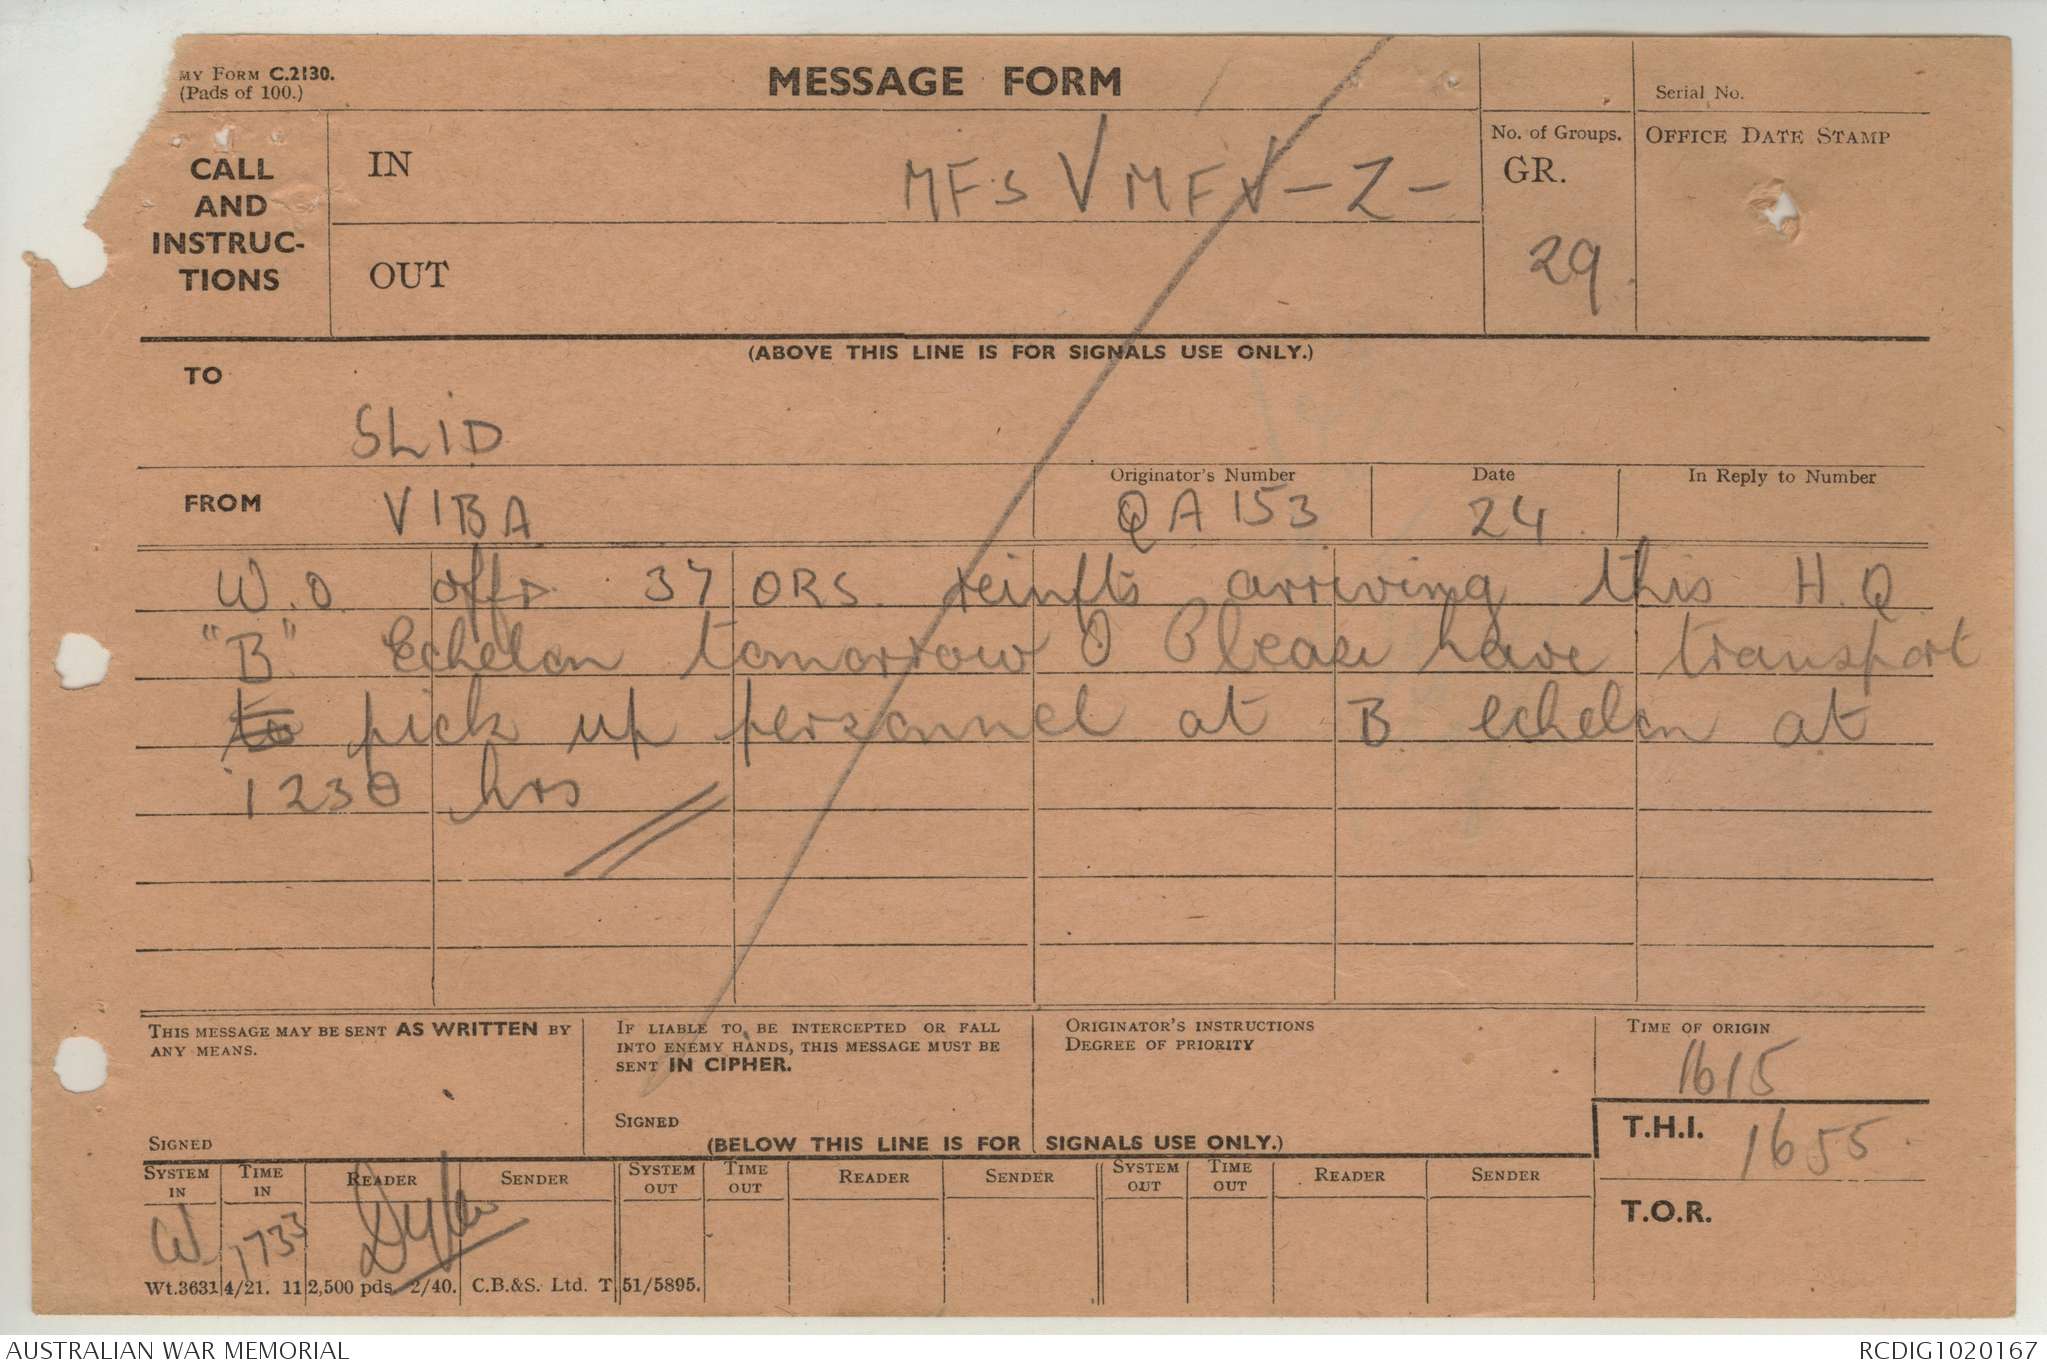 MY FORM C.2130.
(Pads of 100.)
MESSAGE FORM
Serial No.
CALL
AND
INSTRUC-
TIONS
IN
MFS V MFV - Z -
OUT
No. of Groups.
GR.
29
OFFICE DATE STAMP
(ABOVE THIS LINE IS FOR SIGNALS USE ONLY.)
TO
SLID
FROM
VIBA
Originator's Number
QA 153
Date
24
In Reply to Number
W.O. offr 37 ORS. reinfts arriving this H.Q
"B" Echelon tomorrow O Please have transport
to pick up personnel at B echelon at
1230 hrs
THIS MESSAGE MAY BE SENT AS WRITTEN BY
ANY MEANS.
SIGNED
IF LIABLE TO BE INTERCEPTED OR FALL
INTO ENEMY HANDS, THIS MESSAGE MUST BE
SENT IN CIPHER.
SIGNED
ORIGINATOR'S INSTRUCTIONS
DEGREE OF PRIORITY
TIME OF ORIGIN
1615
(BELOW THIS LINE IS FOR SIGNALS USE ONLY.)
T.H.I.
1655
T.O.R.
SYSTEM IN TIME IN READER SENDER SYSTEM OUT TIME OUT READER SENDER SYSTEM OUT TIME OUT READER SENDER
W 1733
Wt.3631 4/21. 11 2,500 pds. 2/40. C.B.&S. Ltd. T 51/5895.
AUSTRALIAN WAR MEMORIAL
RCDIG1020167